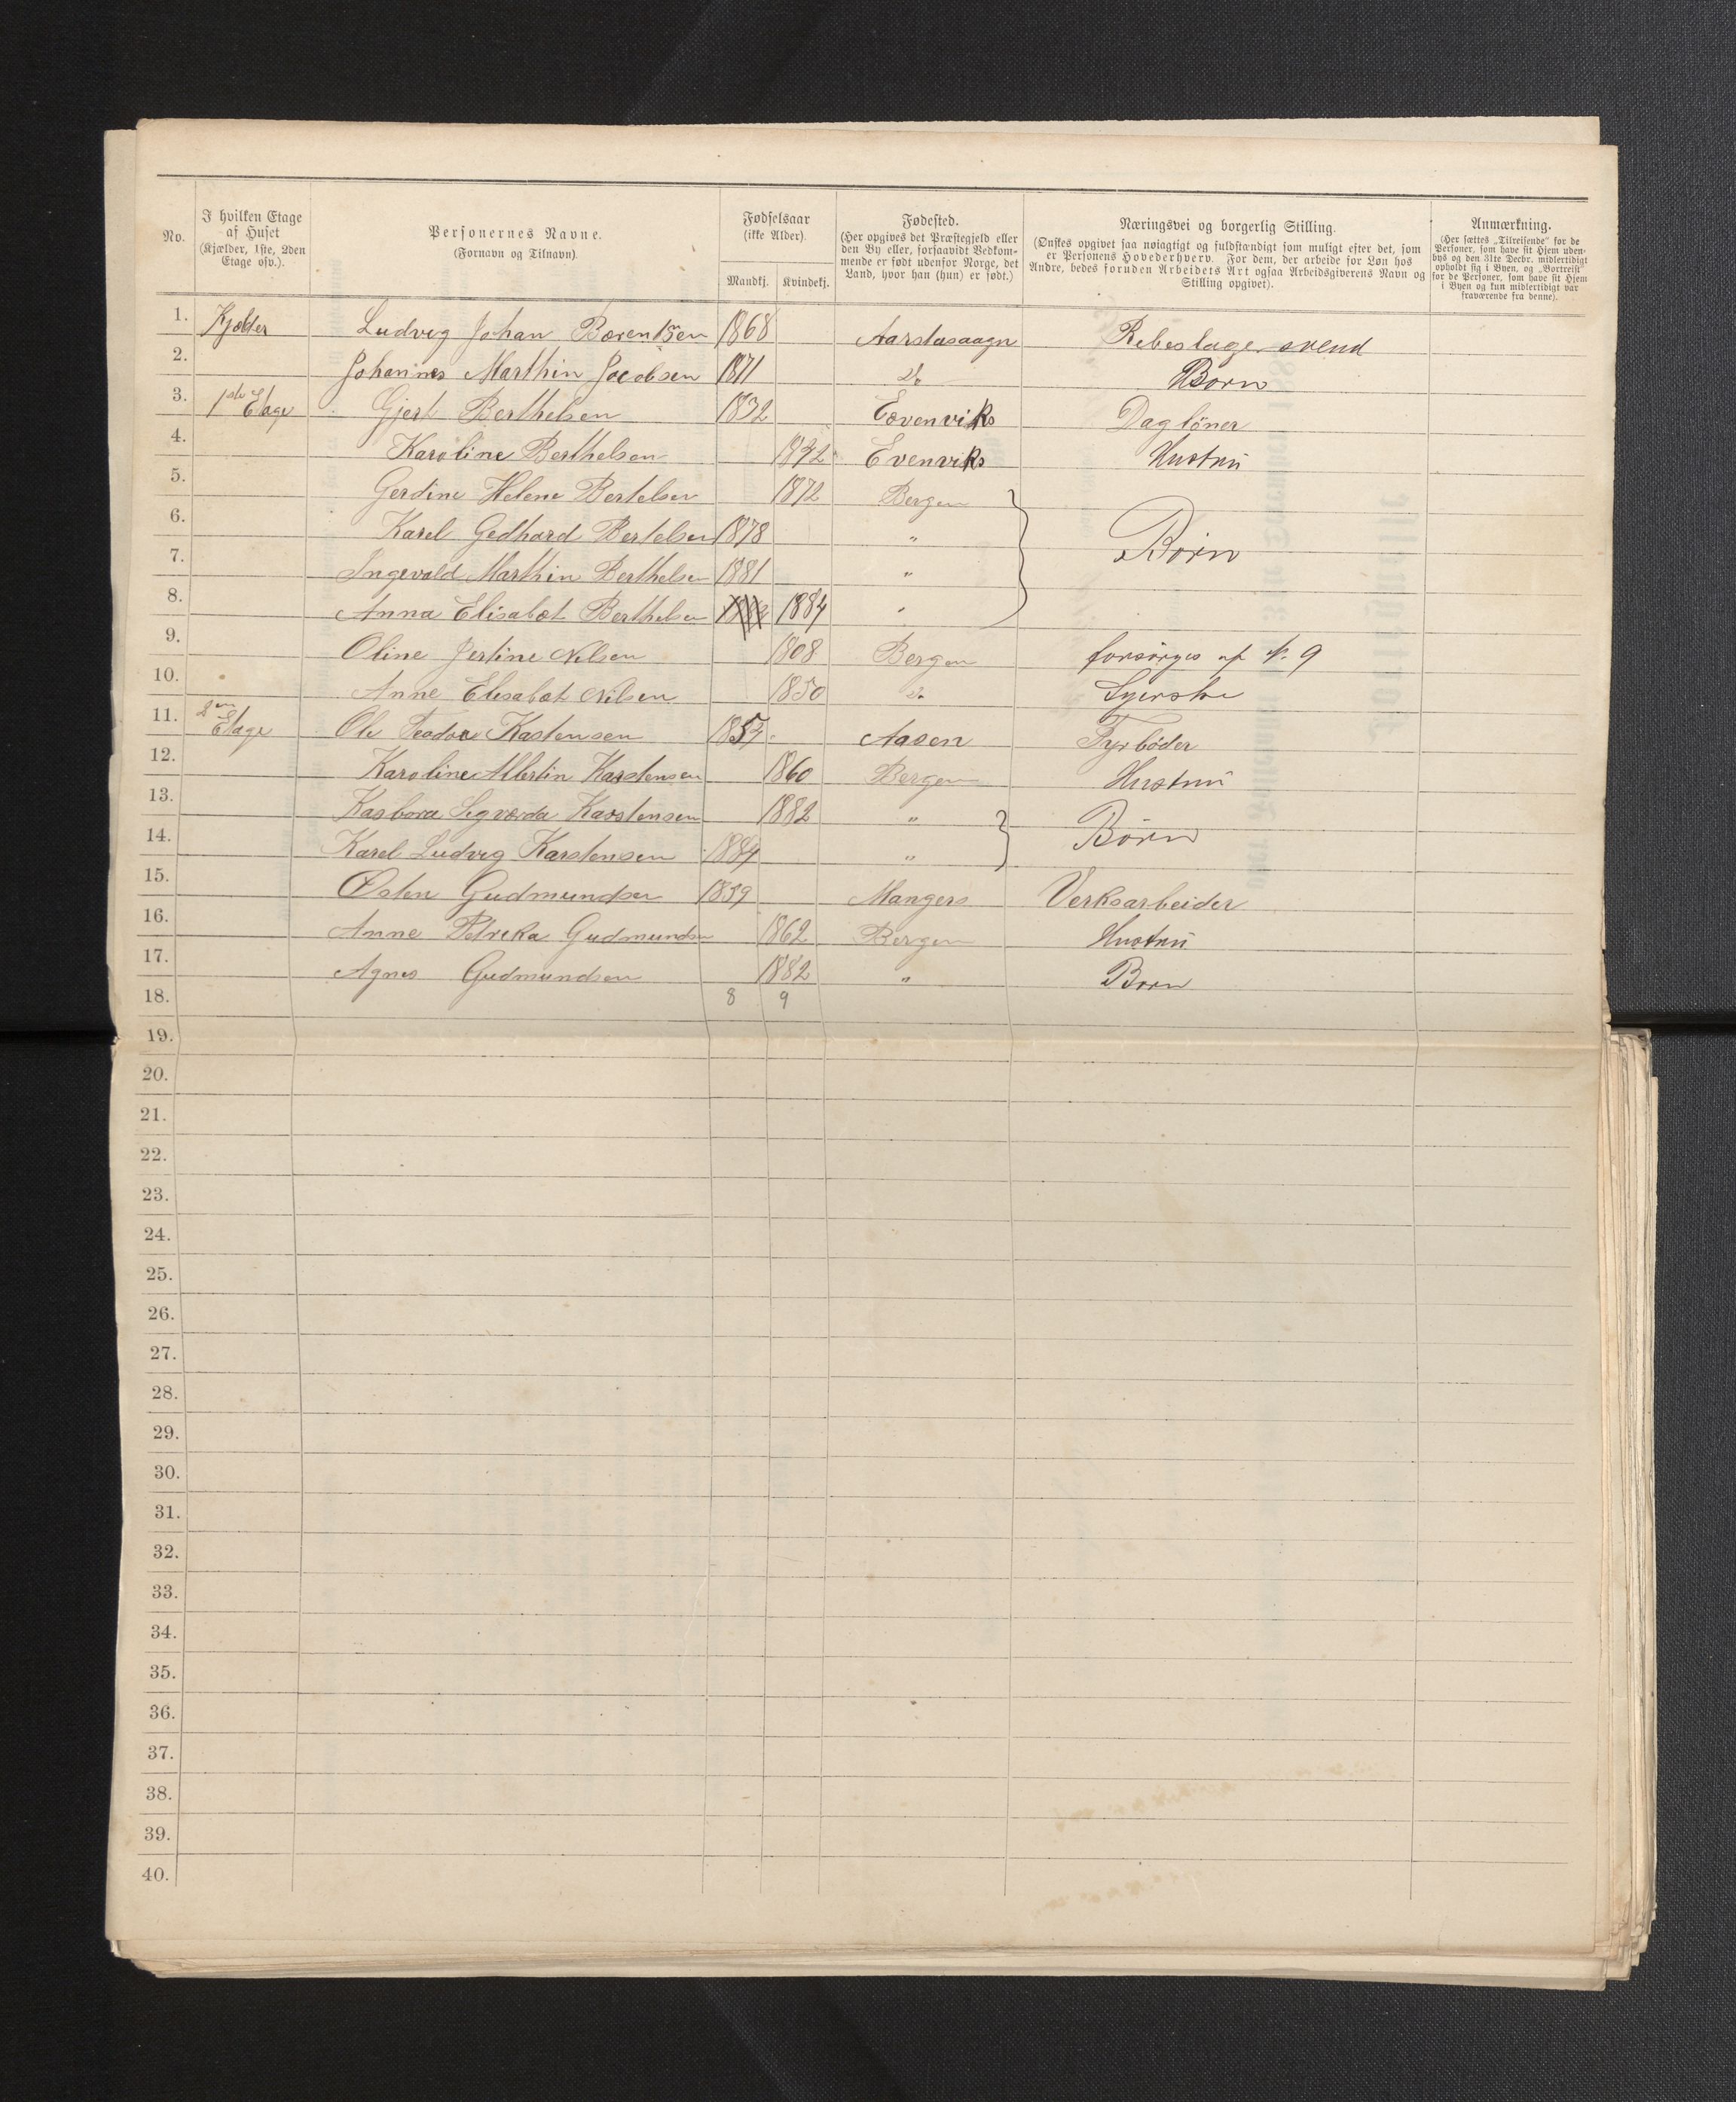 No.
I hvilken Etage af Huset (Kjælder, 1ste, 2den Etage osv.).
Personernes Navne. (Fornavn og Tilnavn).
Fødselsaar (ikke Alder). Mandkj. Kvindekj.
Fødested. (Her opgives det Præstegjeld eller den By eller, forsaavidt Vedkommende er født udenfor Norge, det Land, hvor han (hun) er født.)
Næringsvei og borgerlig Stilling. (Ønskes opgivet saa nøiagtigt og fuldstændigt som muligt efter det, som er Personens Hovederhverv. For dem, der arbeide for Løn hos Andre, bedes foruden Arbeidets Art ogsaa Arbeidsgiverens Navn og Stilling opgivet).
Anmærkning. (Her sættes „Tilreisende“ for de Personer, som have sit Hjem udenbys og den 31te Decbr. midlertidigt opholdt sig i Byen, og „Bortreist“ for de Personer, som have sit Hjem i Byen og kun midlertidigt var fraværende fra denne).
1. Kjælder Ludvig Johan Børentsen 1868 Aarstasaagn Rebeslager svend
2. Johannes Marthin Jacobsen 1871 Do Børn
3. 1ste Etage Gjert Berthelsen 1832 Eevenviks Dagløner
4. Karoline Berthelsen 1842 Evenviks Hustru
5. Gerdine Helene Bertelsen 1872 Bergen
6. Karel Gedhard Bertelsen 1878 " Børn
7. Ingevald Marthin Berthelsen 1881 "
8. Anna Elisabet Berthelsen 1884 "
9. Oline Jertine Nilsen 1808 Bergen forsørges af N. 9
10. Anne Elisabet Nilsen 1850 Do Syerske
11. 2en Etage Ole Teodor Kastensen 1854 Aasen Fyrbøder
12. Karoline Albertin Karstensen 1860 Bergen Hustru
13. Kasbora Sigvarda Karstensen 1882 " Børn
14. Karel Ludvig Karstensen 1884 "
15. Østen Gudmundsen 1859 Mangers Verksarbeider
16. Anne Petreka Gudmundsen 1862 Bergen Hustru
17. Agnes Gudmundsen 1882 " Born
18. 8 9
19.
20.
21.
22.
23.
24.
25.
26.
27.
28.
29.
30.
31.
32.
33.
34.
35.
36.
37.
38.
39.
40.